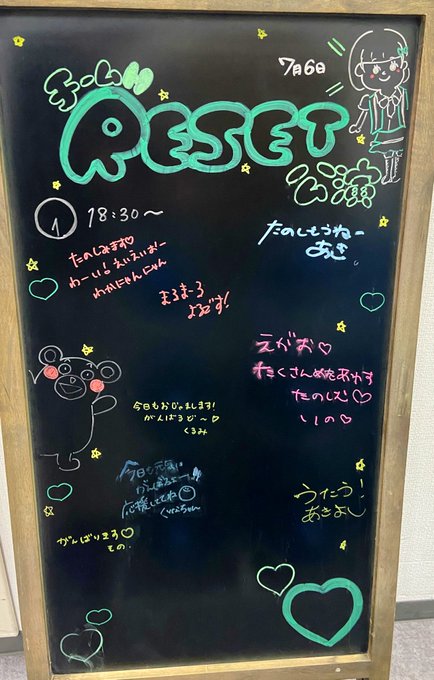 7月6日
チームK
RESET
公演
① 18:30〜
たのしみます♡
わーい!えいえいおー
わかにゃんにゃん
たのしもうねー
あき
まるまーる
よろです!
えがお♡
たくさんめをあわす
たのしむ♪
いの♡
今日もおじゃまします!
がんばるど〜♡
くるみ
今日も元気に
がんばるよー!
応援しててね
うたう!
あきよし
がんばります♡
その.